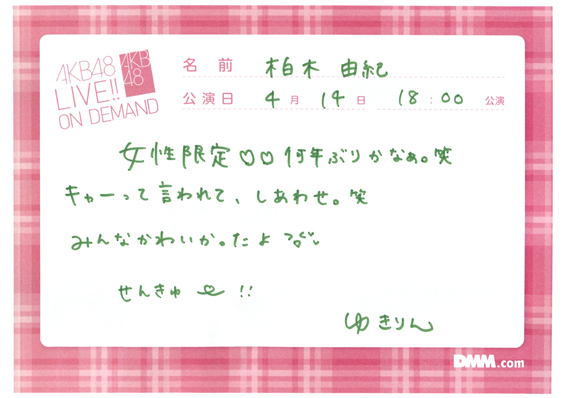 AKB48
LIVE!!
ON DEMAND
AKB
48
名前 柏木 由紀
公演日 4月 14日 18:00 公演
女性限定♡♡何年ぶりかなぁ。笑
キャーって言われて、しあわせ。笑
みんなかわいか。たよ
せんきゅ ♡ !!
ゆきりん
DMM.com